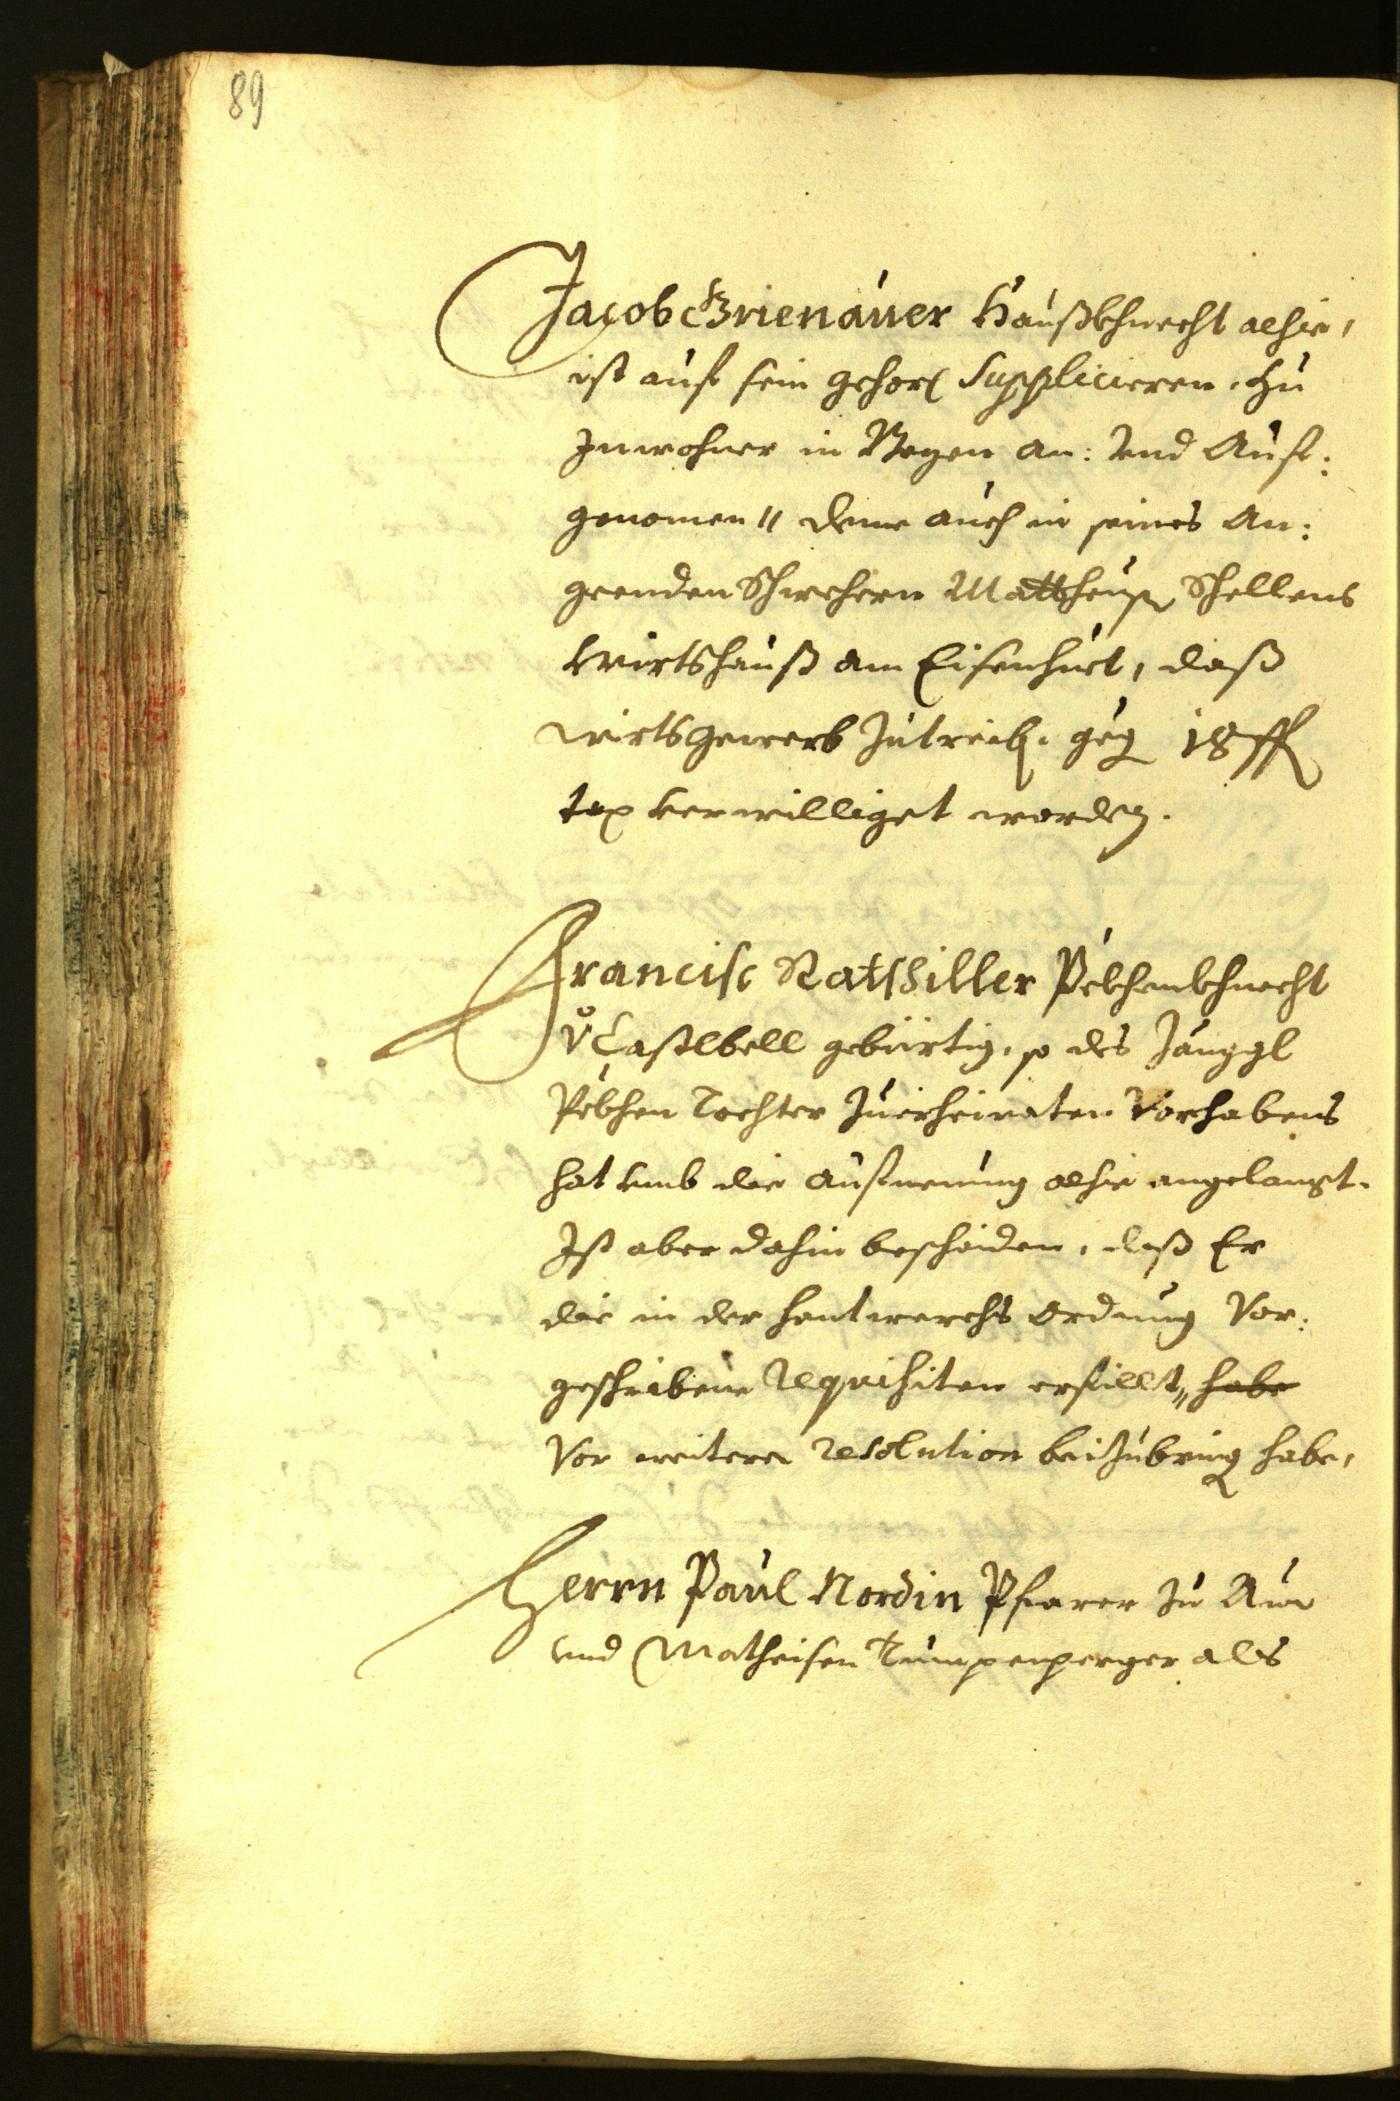 89
Jacob Grienauer Haußkhnecht alhie,
ist auf sein gehors Supplicieren, Zu
Inwohner in Bozen an: Vnd Auf:
genomen" deme auch in seines An:
geenden Schwehern Mattheusn Schellens
Wirtshauß am Eisenhuet, daß
wirtsgewerb Zutreib. geg 18 ff
tax verwilliget worden.
Francisc Ratschiller Pekhenkhnecht
v Castlbell gebürtig, so des Jänggl
Pekhen Tochter Zuerheiraten Vorhabens
hat vmb die Aufnemung alhie angelangt.
Ist aber dahin bescheiden, daß Er
die in der hantwerchs ordnung Vor:
geschribene requisiten erfüllt" habe
Vor weiterer resolution beiZubring habe,
Herrn Paul Nordin Pfarer Zu Aur
vnd Matheisen Rumpenperger als